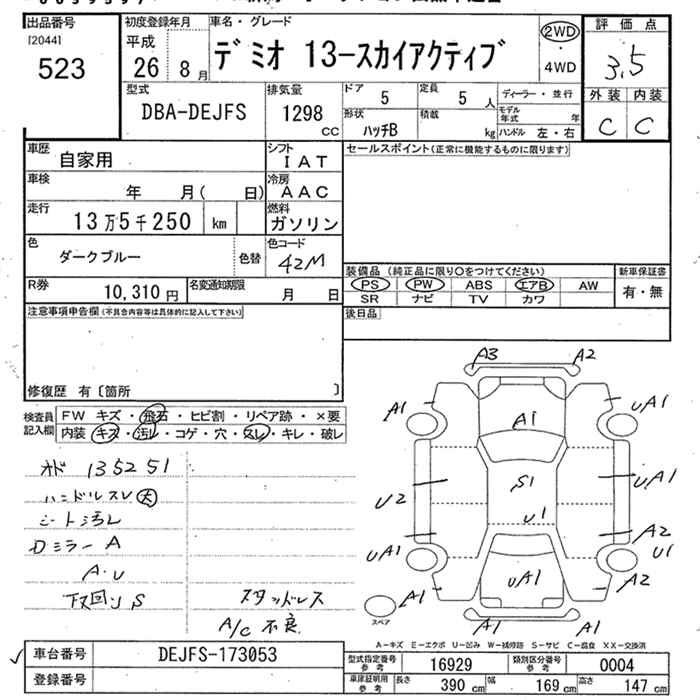 出品番号
[2044]
523
初度登録年月
平成
26年 8月
車名・グレード
デミオ 13-スカイアクティブ
2WD
・
4WD
評価点
3.5
外装 内装
C C
型式
DBA-DEJFS
排気量
1298
cc
ドア
5
定員
5人
ディーラー・並行
形状
ハッチB
積載
kg
モデル年式 年
ハンドル 左・右
車歴
自家用
シフト
IAT
セールスポイント(正常に機能するものに限ります)
車検
年 月( 日)
冷房
AAC
走行
13万5千250 km
燃料
ガソリン
色
ダークブルー
色替
色コード
42M
装備品(純正品に限り○をつけてください)
新車保証書
PS PW ABS エアB AW
SR ナビ TV カワ
有・無
R券
10,310円
名変通知期限
月 日
後日品
注意事項申告欄(不具合内容等は具体的に記入して下さい)
修復歴 有〔箇所 〕
検査員記入欄
FW キズ・飛石・ヒビ割・リペア跡・×要
内装 キズ・汚れ・コゲ・穴・スレ・キレ・破レ
オド 135251
ハンドルスレ大
シート汚レ
ロミラー A
A・U
下回り S
スタッドレス
A/C 不良
A3 A2
A1 UA1
A1
S1
U2 UA1
U1
A2
UA1 U1
UA1
A2
A1
A1 A1
スペア
A-キズ E-エクボ U-凹み W-補修跡 S-サビ C-腐食 XX-交換済
車台番号
DEJFS-173053
登録番号
型式指定番号 参考
16929
類別区分番号 参考
0004
車庫証明用 参考
長さ 390cm 幅 169cm 高さ 147cm